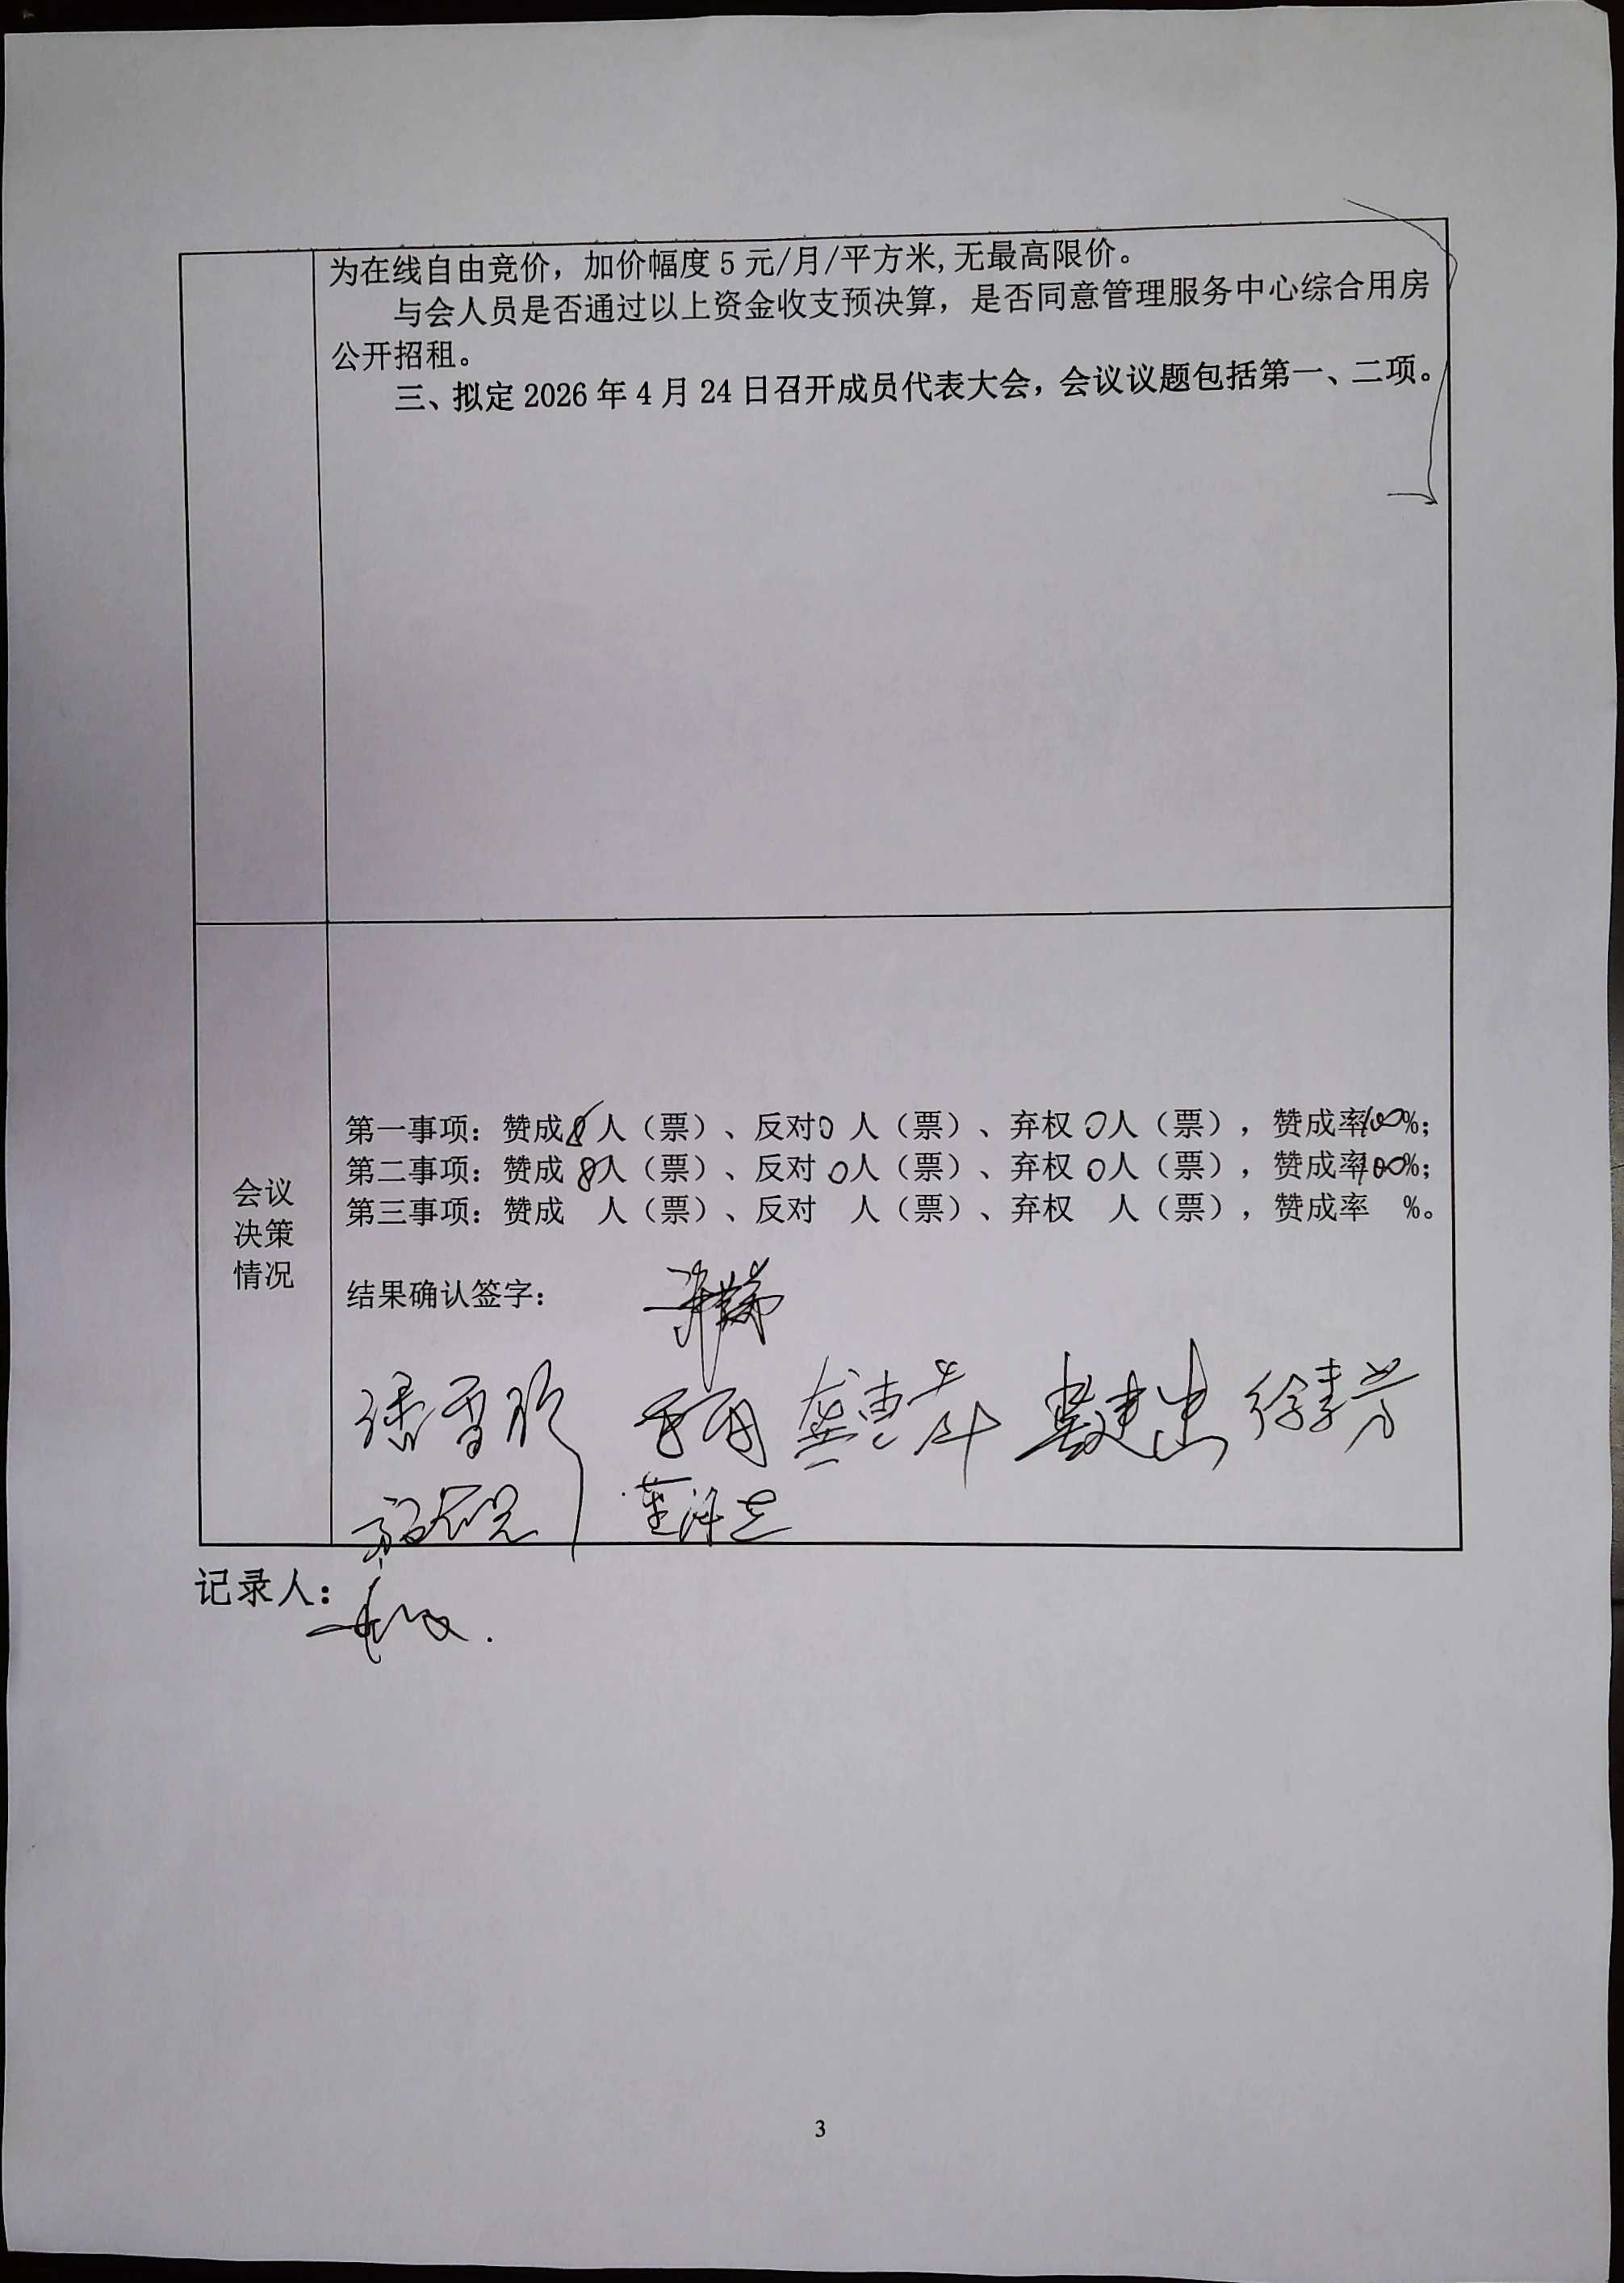 为在线自由竞价，加价幅度5元/月/平方米,无最高限价。
与会人员是否通过以上资金收支预决算，是否同意管理服务中心综合用房
公开招租。
三、拟定2026年4月24日召开成员代表大会，会议议题包括第一、二项。
会议
决策
情况
第一事项：赞成8人（票）、反对0人（票）、弃权0人（票），赞成率100%；
第二事项：赞成8人（票）、反对0人（票）、弃权0人（票），赞成率100%；
第三事项：赞成 人（票）、反对 人（票）、弃权 人（票），赞成率 %。
结果确认签字：
潘雪珍
徐素芳
记录人：
3